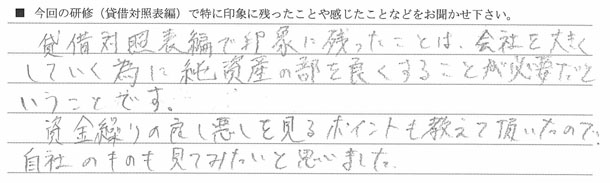 ■ 今回の研修（貸借対照表編）で特に印象に残ったことや感じたことなどをお聞かせ下さい。
貸借対照表編で印象に残ったことは、会社を大きく
していく為に純資産の部を良くすることが必要だと
いうことです。
資金繰りの良し悪しを見るポイントも教えて頂いたので、
自社のものも見てみたいと思いました。